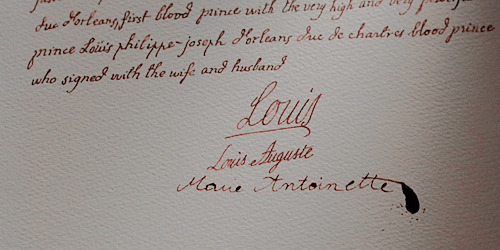 duc d'orleans, first blood prince with the very high and very
prince Loüis philippe-joseph d'orleans duc de chartres blood prince
who signed with the wife and husband
Louis
Louis Auguste
Marie Antoinette